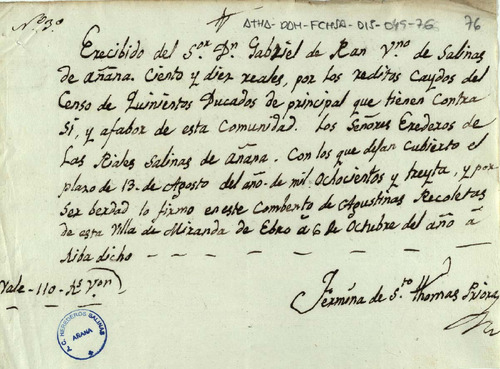 Nº 3º
ATHA-DAH-FCHSA-DIS-049-76
76
Erecibido del Sor Dn Gabriel de Ran Vno de Salinas
de Añana. Ciento y diez reales, por los reditos Caydos del
Censo de Quinientos Ducados de principal que tienen Contra
Si, y afabor de esta Comunidad. Los Señores Erederos de
Las Riales Salinas de Añana. Con los que dejan Cubierto el
plazo de 13 de Agosto del año de mil Ochocientos y treyta, y por
Ser berdad lo firmo en este Combento de Agustinas Recoletas
de esta Villa de Miranda de Ebro á 6 de Octubre del año á
Riba dicho
Vale - 110 - Rs Von
Jermina de Sto Thomas Priora
T. C. HEREDEROS SALINAS
AÑANA